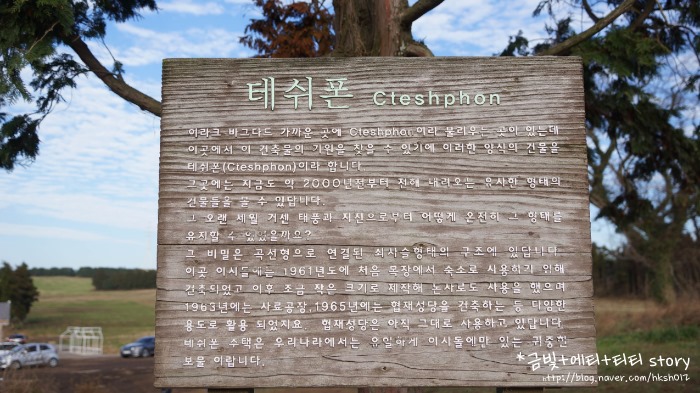 테쉬폰 Cteshphon
이라크 바그다드 가까운 곳에 Cteshphon이라 불리우는 곳이 있는데
이곳에서 이 건축물의 기원을 찾을 수 있기에 이러한 양식의 건물을
테쉬폰(Cteshphon)이라 합니다
그곳에는 지금도 약 2000년전부터 전해 내려오는 유사한 형태의
건물들을 볼 수 있답니다.
그 오랜 세월 거센 태풍과 지진으로부터 어떻게 온전히 그 형태를
유지할 수 있었을까요?
그 비밀은 곡선형으로 연결된 쇠사슬형태의 구조에 있답니다.
이곳 이시돌에는 1961년도에 처음 목장에서 숙소로 사용하기 위해
건축되었고 이후 조금 작은 크기로 제작해 돈사로도 사용을 했으며
1963년에는 사료공장, 1965년에는 협재성당을 건축하는 등 다양한
용도로 활용 되었지요. 협재성당은 아직 그대로 사용하고 있답니다.
테쉬폰 주택은 우리나라에서는 유일하게 이시돌에만 있는 귀중한
보물 이랍니다.
*금빛+에티+티티 story
http://blog.naver.com/hksh017